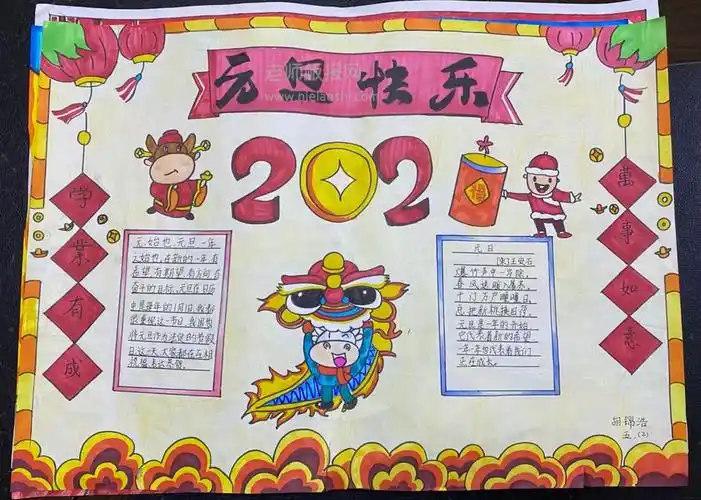 元旦快乐
老师板报网
www.njelanshi.com
202
福
学业有成
萬事如意
元,始也,元旦一年
之始也,在新的一年有
希望有期望有方向有
奋斗的目标。元旦在日历
中是每年的1月1日,我国
很重视这一节日,我国
将元旦作为法定的节假
日这一天大家都在互相
祝福
元日
[宋]王安石
爆竹声中一岁除,
春风送暖入屠苏。
千门万户曈曈日,
总把新桃换旧符。
元旦是一年的开始
也代表着新的希望
一年一年也代表着我们
正在成长。
胡锦浩
五.(2)